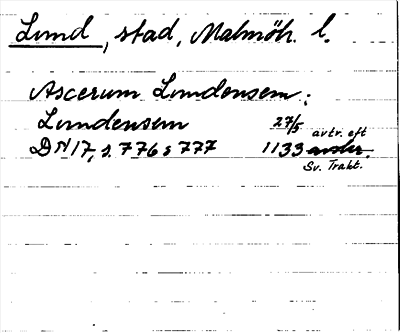 Lund, stad, Malmöh. l.
Ascerum Lundensem;
Lundensem 27/5 avtr. eft
DN 17, s. 776 s 777 1133 avskr.
Sv. Trakt.